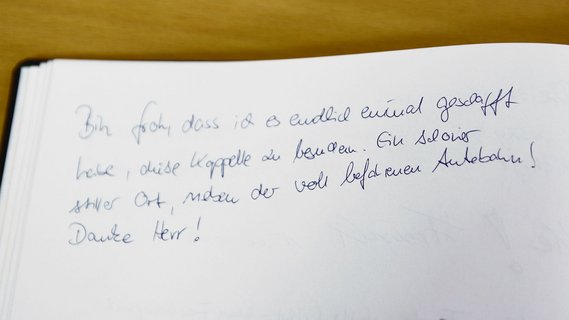 Bin froh, dass ich es endlich einmal geschafft
habe, diese Kappelle zu besuchen. Ein schöner
stiller Ort, neben der voll befahrenen Autobahn!
Danke Herr!